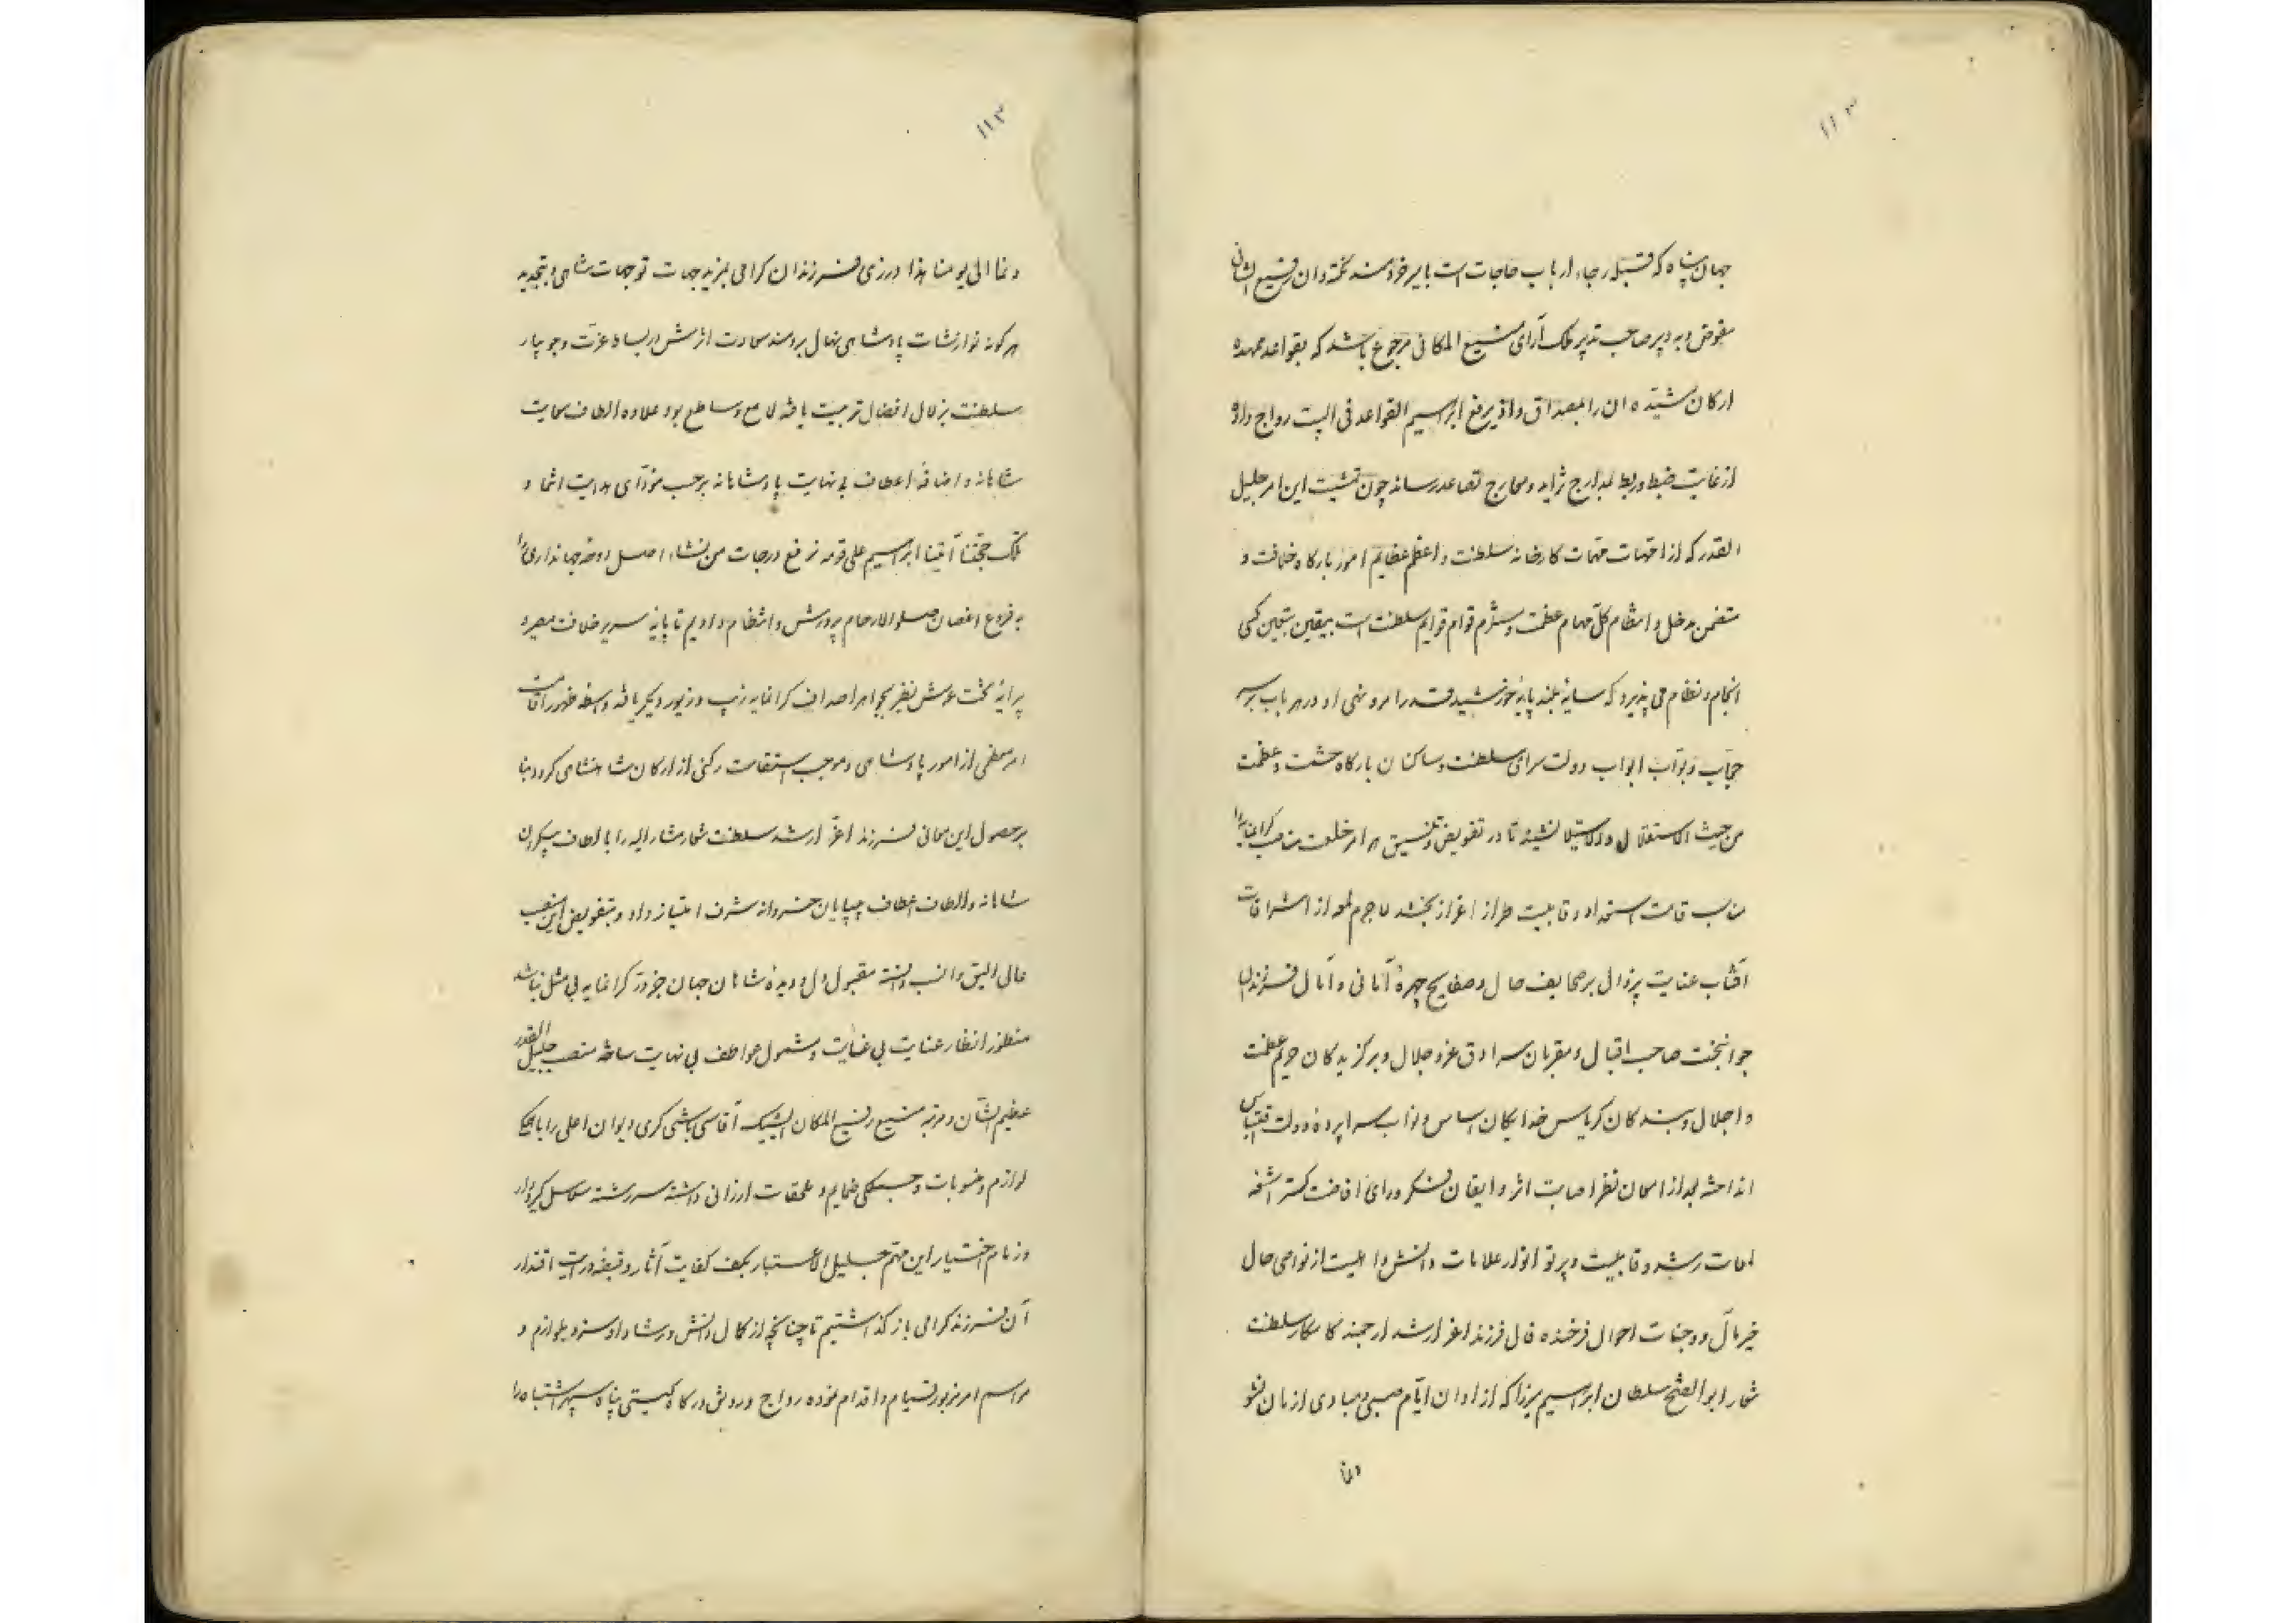 ۱۱۳
جهان پناه که قبله رجاء ارباب حاجات است بامیر خردمند نکته دان رفیع الشانی
مفوض و به دبیر صاحب تدبیر ملک آرای منیع المکانی مرجوع باشد که بقواعد ممهده
ارکان مشیّده ان را بمصداق واذ یرفع ابراهیم القواعد فی البیت رواج داده
از غایت ضبط و ربط بمدارج تزاید و معارج تصاعد رساند چون تمشیت این امر جلیل
القدر که از امّهات مهمّات کارخانه سلطنت و اعظم عظایم امور بارگاه خلافت و
متضمن مدخل و انتظام کلّ مهام عظمت و مستلزم قوام قوایم سلطنت است بیقین کسی
انجام و نظام می پذیرد که سایهٔ بلند پایهٔ خورشید قدر امر و نهی او در هر باب بر سر
حجّاب و بوّاب ابواب دولت سرای سلطنت و ساکنان بارگاه حشمت و عظمت
من حیث الاستقلال والاستیلا نشیند تا در تفویض و تنسیق هر امر خلعت مناصب گرانمایه را
مناسب قامت استعداد و قابلیت طراز اعزاز بخشد لاجرم لمعه از اشراقات
آفتاب عنایت بر صحایف حال و صفایح چهرهٔ امانی و آمال فرزندان
جوانبخت صاحب اقبال و مقربان سرادق عز و جلال و برگزیدگان حریم عظمت
و اجلال و بندگان کریاس خدایگان اساس و نواب سرا پردهٔ دولت اقتباس
انداخته بعد از امعان نظر اصابت اثر و ایقان فکر و رای افاضت گستر اشعه
لمعات رشد و قابلیت و پرتو انوار علامات دانش و اهلیت از نواصی حال
خیر مآل و وجنات احوال فرخنده فال فرزند اعز ارشد ارجمند کامکار سلطنت
شعار ابوالفتح سلطان ابراهیم میرزا که از اوان ایّام صبی و مبادی ازمان نشو
و نما
۱۱۳
و نما الی یومنا هذا در زی فرزندان گرامی بمزید جهات توجهات شاهی و بتجدید
هر گونه نوازشات پادشاهی نهال برومند سعادت اثرش در بساط عزّت و جویبار
سلطنت بزلال افضال تربیت یافته لامع و ساطع بود علاوه الطاف حمایت
شاهانه و اضافهٔ اعطاف بی نهایت پادشاهانه برحسب مؤدّای هدایت انتما و
تلک حجّتنا آتینا ابراهیم علی قومه نرفع درجات من نشاء اصل دوحهٔ جهانداری را
به فروع اغصان صلوا الارحام پرورش و انتظام دادیم تا پایهٔ سریر خلافت مصیر و
پیرایهٔ تخت عرش نظیر بجواهر اصداف گرانمایه زیب و زیور دیگر یافته واسطه ظهور اقامت
امر معظمی از امور پادشاهی و موجب استقامت رکنی از ارکان شاهنشاهی گردد بنا
بر حصول این معانی فرزند اعزّ ارشد سلطنت شعار مشار الیه را بالطاف بیکران
شاهانه والطاف اعطاف بیپایان خسروانه شرف امتیاز داد و بتفویض این منصب
عالی الیق و انسب دانسته مقبول دل و دیدهٔ شاهان جهان جز در گرانمایه بی مثل نباشد
منظور انظار عنایت بی غایت و شمول عواطف بی نهایت ساخته منصب جلیل القدر
عظیم الشّان و مرتبهٔ منیع رفیع المکان ایشیک آقاسی باشی گری دیوان اعلی را با
لوازم و منسوبات و جمیع ضمایم و ملحقات ارزانی داشته سر رشته
و زمام اختیار این مهم جلیل الاعتبار بکف کفایت آثار و قبضهٔ درایت اقتدار
آن فرزند گرامی باز گذاشتیم تا چنانچه از کمال دانش و رشاد او سزد بلوازم و
مراسم امر مزبور قیام و اقدام نموده رواج و رونق درگاه گیتی پناه سپهر اشتباه را